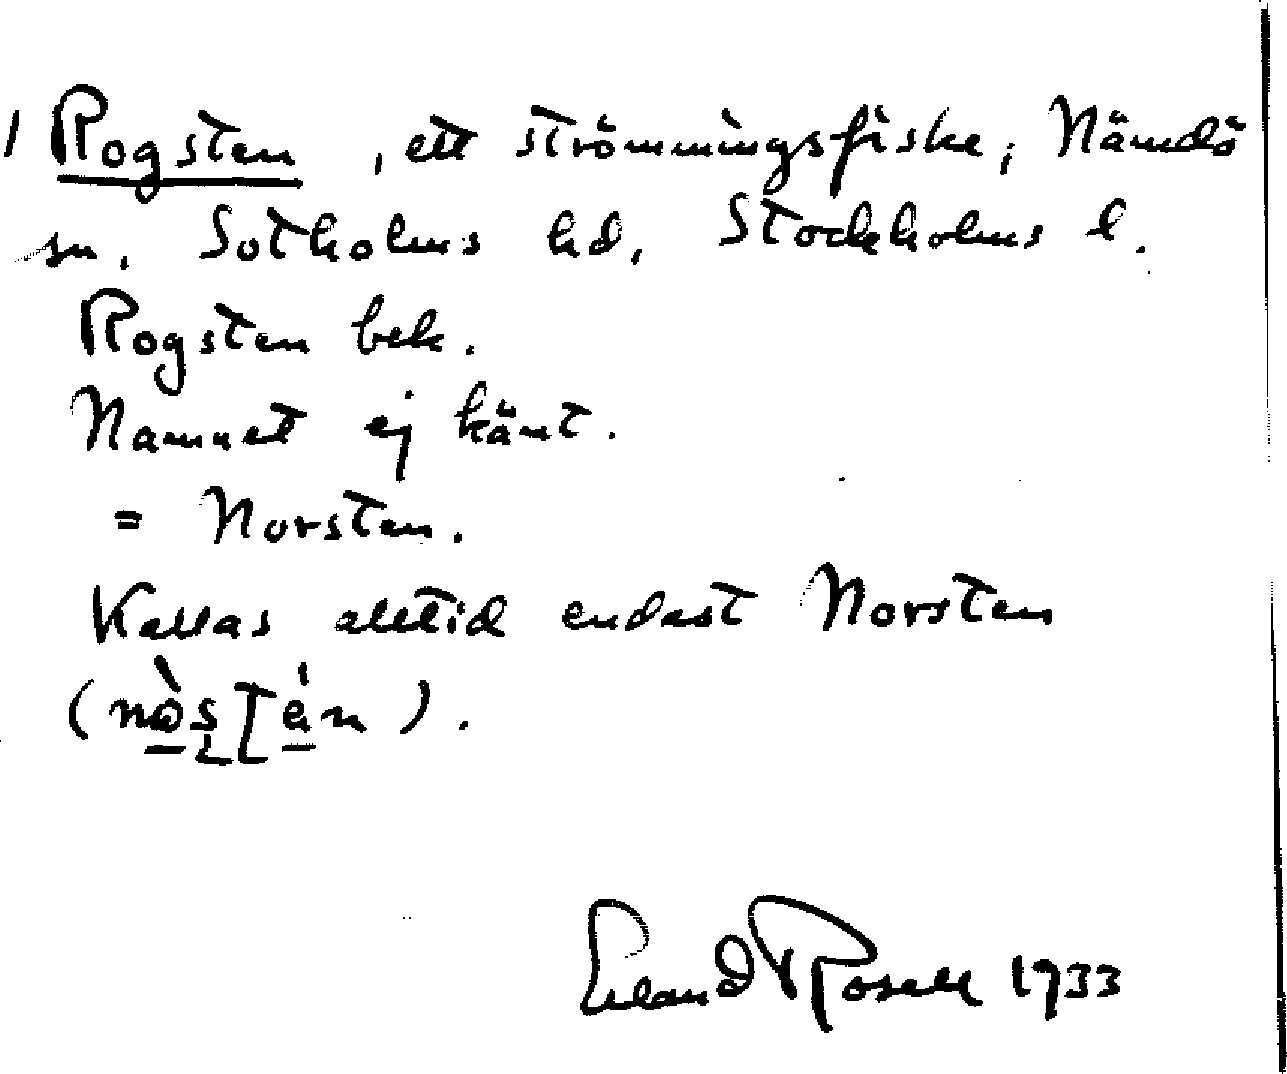 / Rogsten, ett strömmingsfiske, Nämdö
sn, Sotholms hd, Stockholms l.
Rogsten bek.
Namnet ej känt.
= Norsten.
Kallas alltid endast Norsten
(nòstén).
Erland Rosell 1933